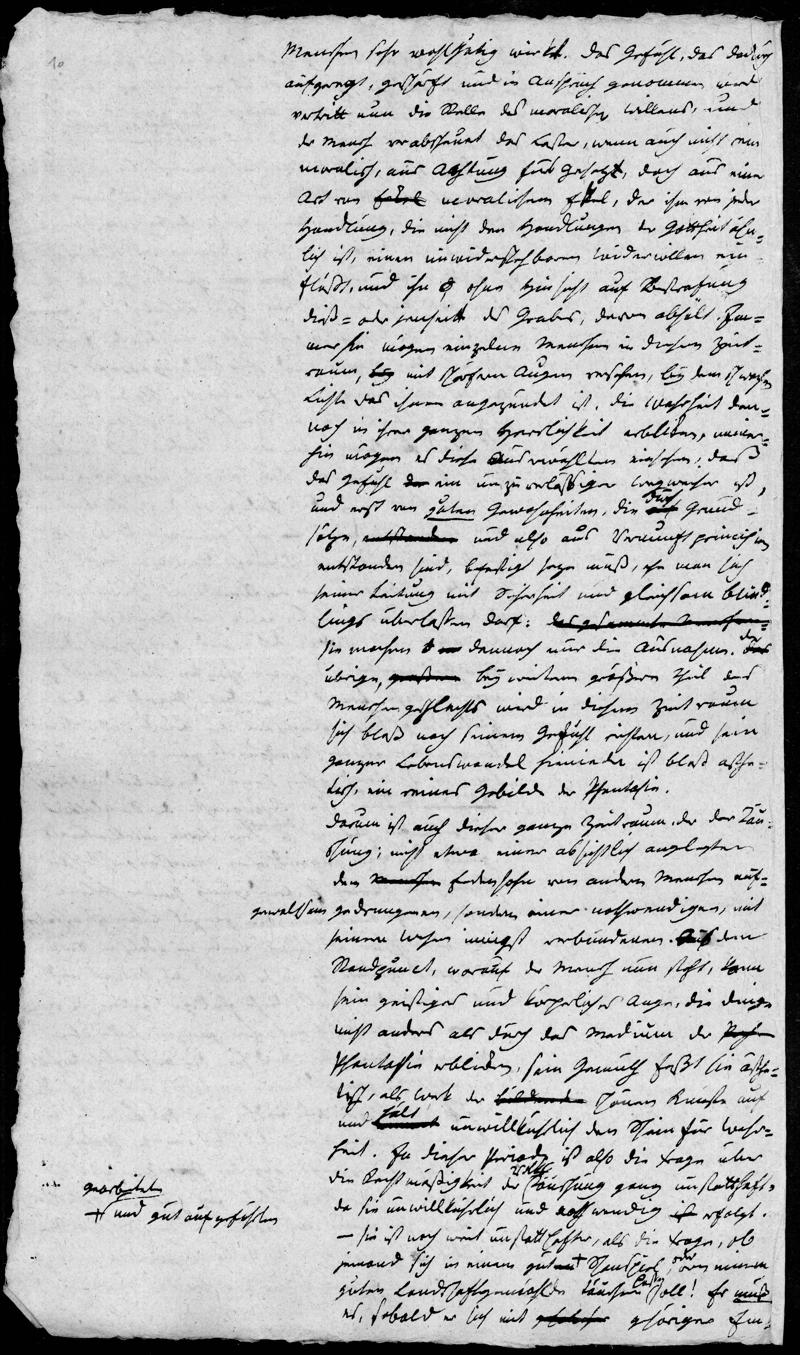 10
Menschen sehr wohlthätig wirkt. Das Gefühl, das dadurch
aufgeregt, geschärft und in Anspruch genommen wird
vertritt nun die Stelle des moralischen Willens, und
der Mensch verabscheuet das Laster, wenn auch nicht rein
moralisch, aus Achtung fürs Gesetz, doch aus einer
Art von Ekel moralischem Ekel, der ihm von jeder
Handlung, die nicht den Handlungen der Gottheit ähn-
lich ist, einen unwiderstehbaren Widerwillen ein-
flößt, und ihn ohne Hinsicht auf Bestrafung
dieß- oder jenseit des Grabes, davon abhält. Im-
merhin mögen einzelne Menschen in diesem Zeit-
raum, mit schärfern Augen versehen, bey dem schwachen
Lichte das ihnen angezündet ist, die Wahrheit den-
noch in ihrer ganzen Herrlichkeit erblicken, immer-
hin mögen es diese Auserwählten einsehen, daß
das Gefühl ein unzuverlässiger Wegweiser ist,
und erst von guten Gewohnheiten, die durch Grund-
sätze, entstanden und also aus Vernunftprincipien
entstanden sind, befestigt seyn muß, ehe man sich
seiner Leitung mit Sicherheit und gleichsam blind-
lings überlassen darf: das gesammte Menschen-
sie machen dennoch nur die Ausnahme. der
übrige, bey weitem größere Theil des
Menschengeschlechts wird in diesem Zeitraum
sich bloß nach seinem Gefühl richten, und sein
ganzer Lebenswandel hienieden ist bloß ästhe-
tisch, ein reines Gebilde der Phantasie.
Darum ist auch dieser ganze Zeitraum, der der Täu-
schung; nicht etwa einer absichtlich angelegten
dem Menschen Erdensohn von andern Menschen auf-
gewaltsam gedrungenen, sondern einer nothwendigen, mit
seinem Wesen innigst verbundenen. Aus dem
Standpunct, worauf der Mensch nun steht, kann
sein geistiges und körperliches Auge, die Dinge
nicht anders als durch das Medium der
Phantasie erblicken, sein Gemüth faßt sie ästhe-
tisch, als Werk der bildenden schönen Künste auf
und hält unwillkührlich den Schein für Wahr-
heit. In dieser Periode ist also die Frage über
die Rechtmäßigkeit der Täuschung ganz unstatthaft,
da sie unwillkührlich und nothwendig ist erfolgt.
— sie ist noch weit unstatthafter, als die Frage, ob
jemand sich in einem guten + Schauspiel, oder von einem
guten Landschaftgemählde täuschen lassen soll! Er muß
es, sobald er sich mit gehöriger Em-
gearbeiteten
+ und gut aufgeführten